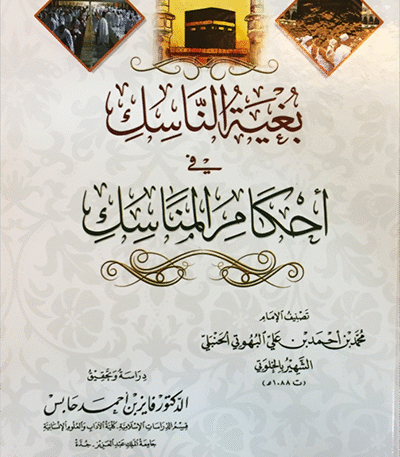 بُغْيَةُ النَّاسِكِ
في
أَحْكَامِ المَنَاسِكِ
تَصْنِيفُ الإِمَامِ
مُحَمَّد بْن أَحْمَد بْن عَلِيّ البُهُوتِيّ الحَنْبَلِيّ
الشَّهِيْرُ بِالخَلْوَتِيّ
(ت ١٠٨٨ هـ)
دِرَاسَة وَتَحْقِيق
الدكتور فايز بن أحمد حابس
قِسْمُ الدِّرَاسَاتِ الإِسْلَامِيَّة، كُلِّيَّةُ الآدَابِ وَالعُلُومِ الإِنْسَانِيَّة
جَامِعَة المَلِك عَبْد العَزِيز، جُدَّة